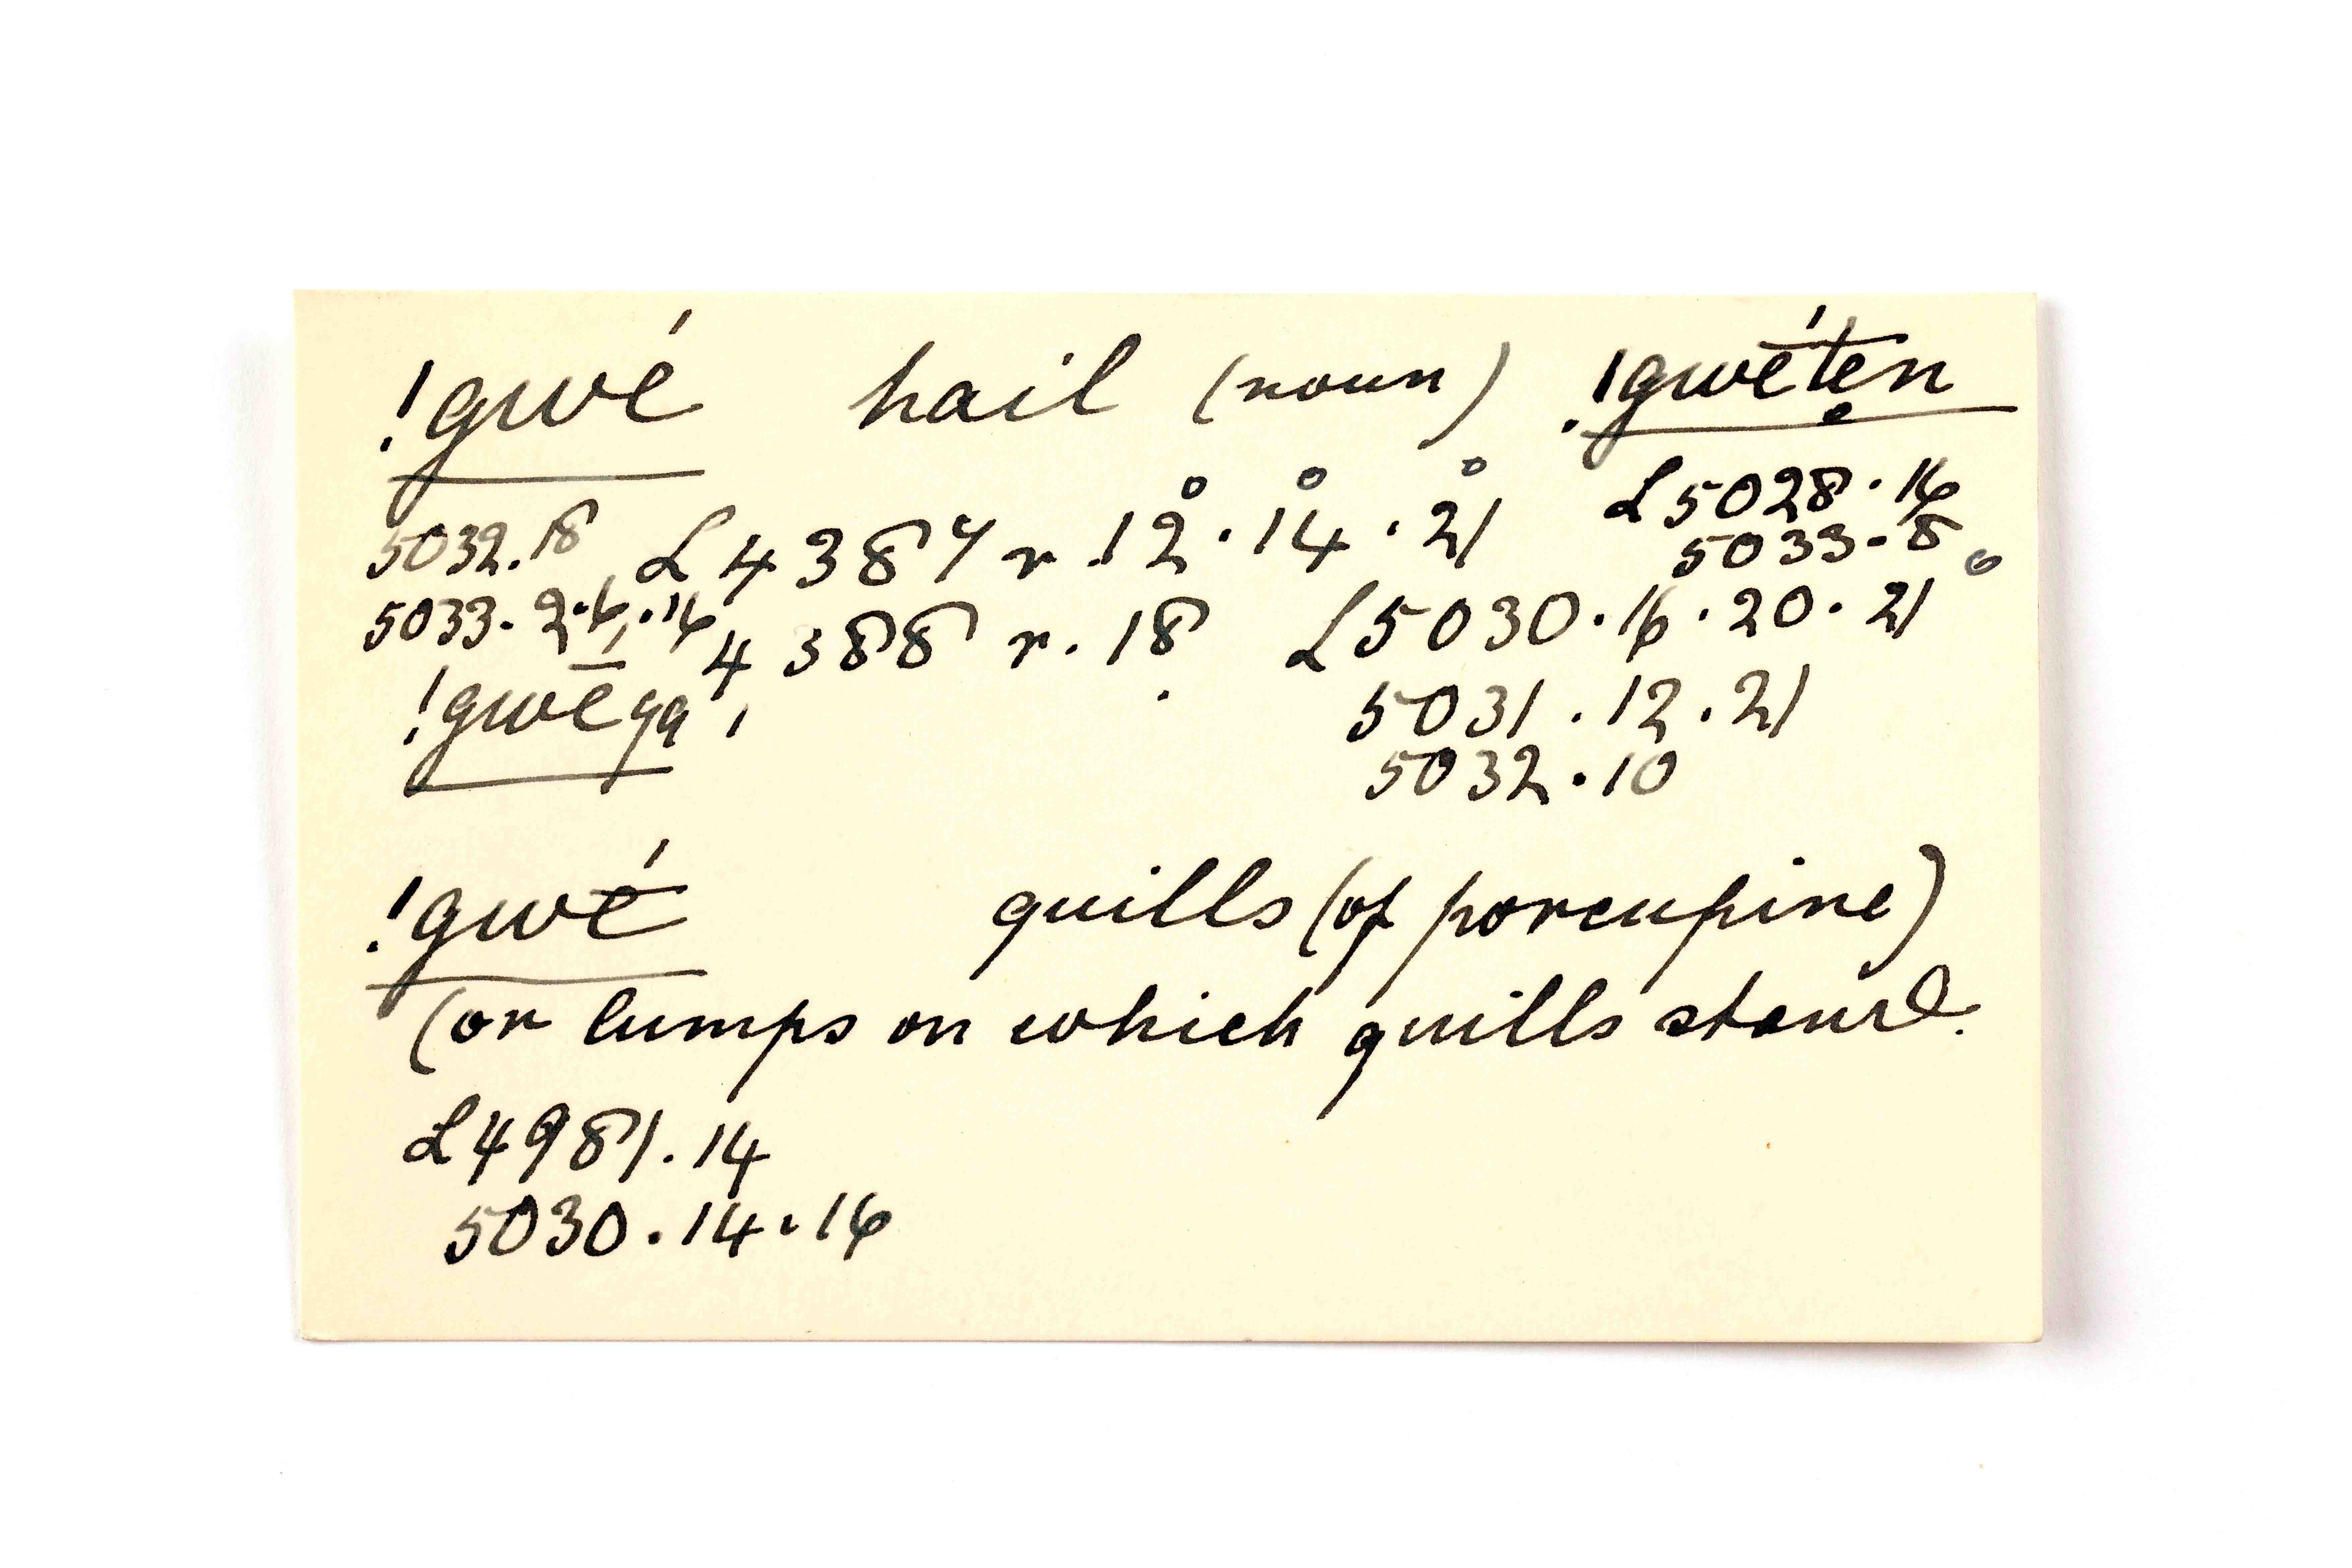 !gwé hail (noun) !gwḗten
5032.18 L4387 r .12°.14°.21° L5028.16
5033.8
5033.2.6.16 4388 r. 18 L5030.16.20.21°
!gwē 5031.12.21
5032.10
!gwḗ quills (of porcupine)
(or lumps on which quills stand.
L4981.14
5030.14.16